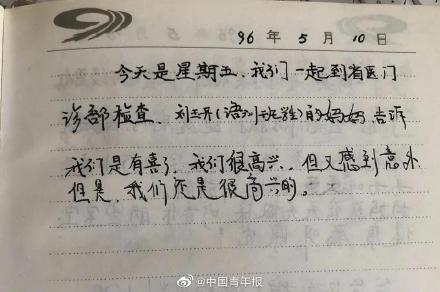 96年5月10日
今天是星期五.我们一起到省医门
诊部检查.刘玉升(语训班学生)的妈妈告诉
我们是有喜了.我们很高兴.但又感到意外
但是.我们还是很高兴的。
@中国青年报